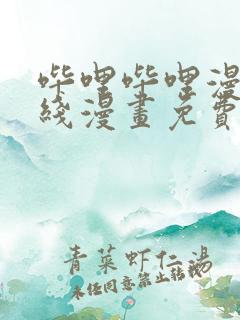 哔哩哔哩漫
綫漫畫免費
青菜虾仁湯
未经同意禁止转载